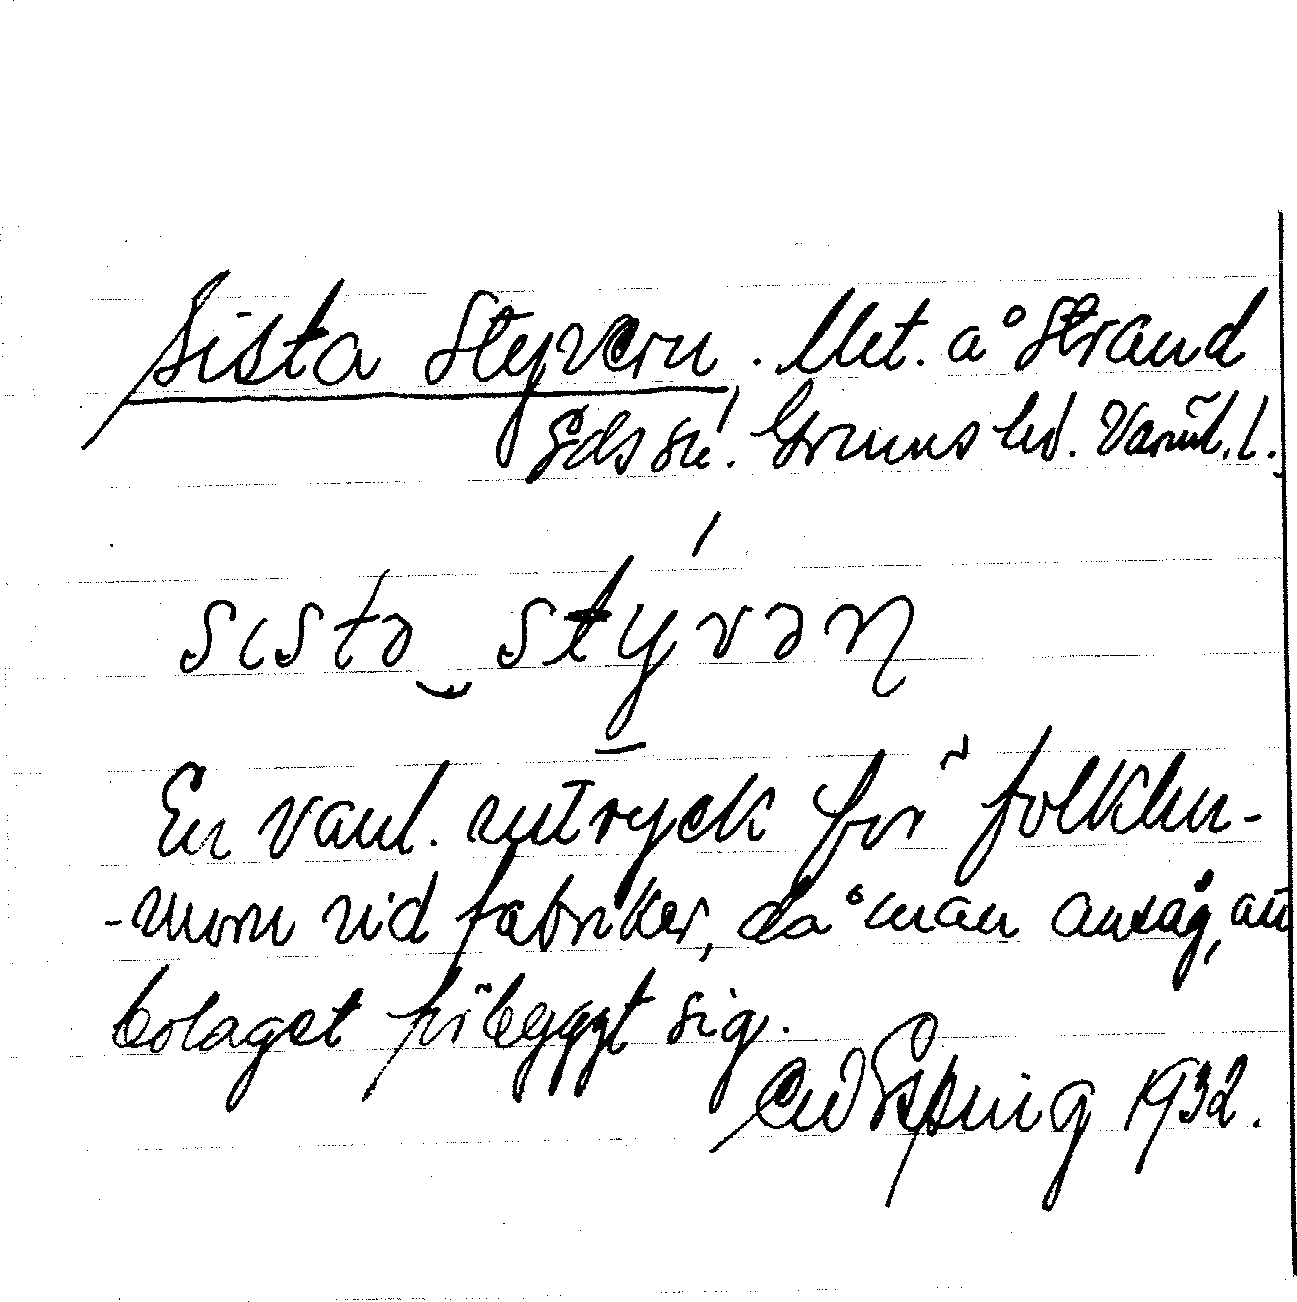 Sista Styvern. Met. å Strand
Eds sn. Grums hd. Värml. l.
sistə styvən
En vanl. uttryck för folkhu-
-morn vid fabriker, då man ansåg, att
bolaget förbyggt sig.
1932.